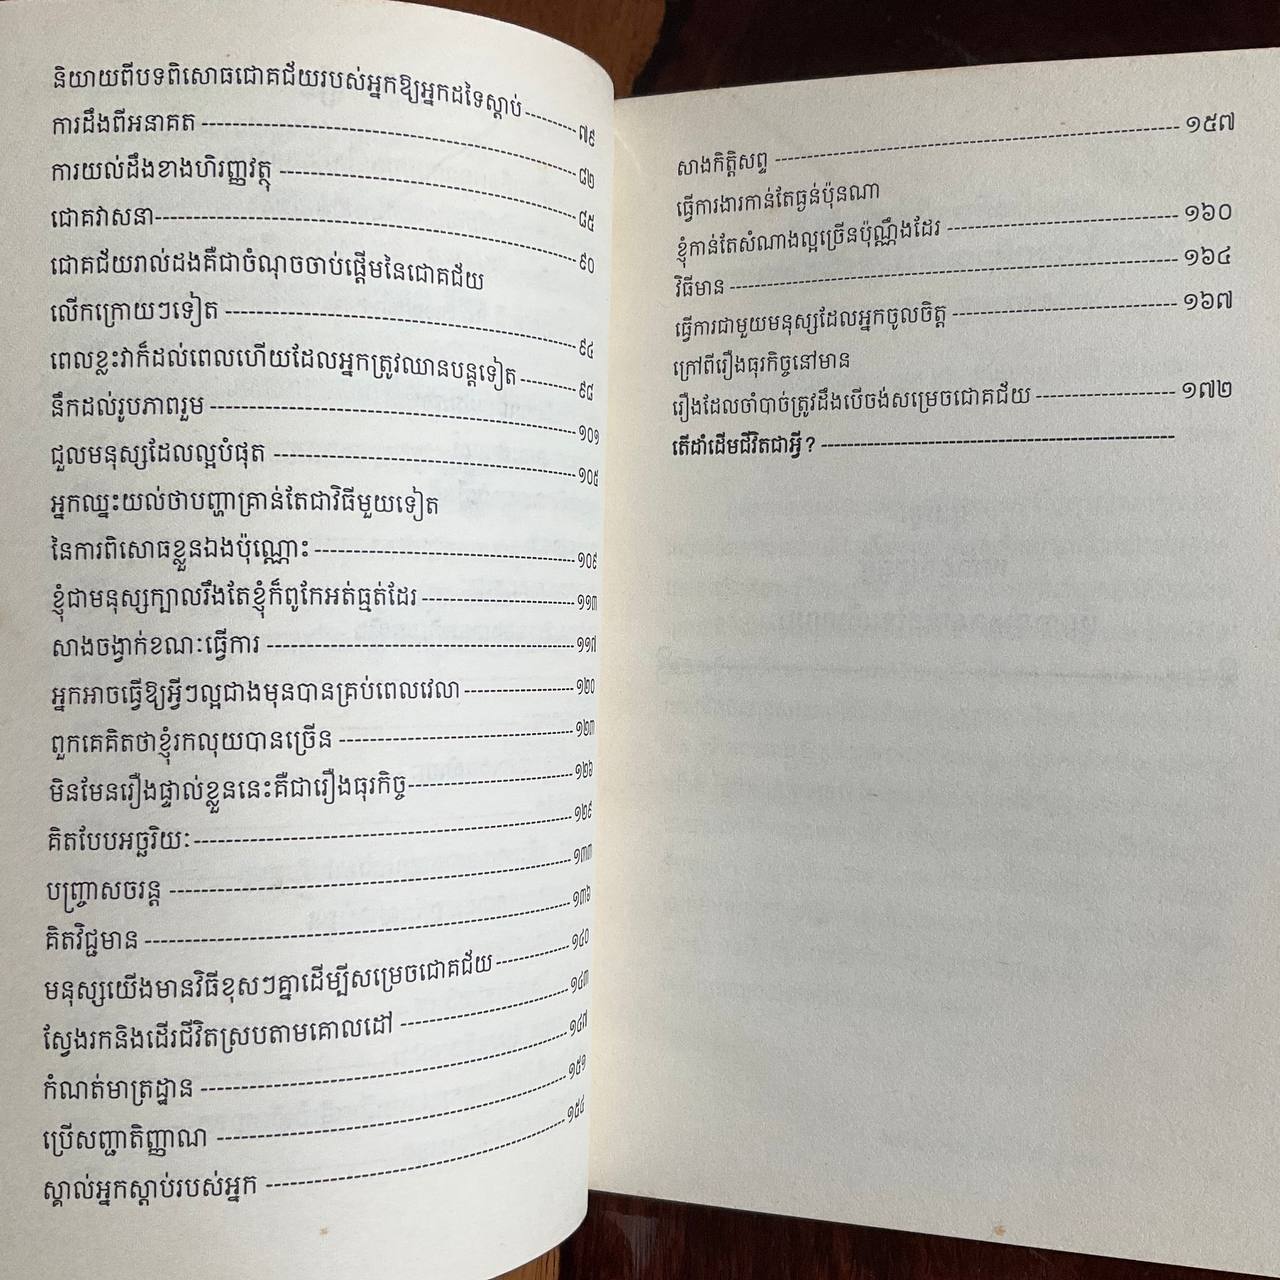 និយាយពីបទពិសោធជោគជ័យរបស់អ្នកឱ្យអ្នកដទៃស្ដាប់----------៧៩
ការដឹងពីអនាគត ----------------------------------------------៨២
ការយល់ដឹងខាងហិរញ្ញវត្ថុ ------------------------------------៨៥
ជោគវាសនា---------------------------------------------------៩០
ជោគជ័យរាល់ដងគឺជាចំណុចចាប់ផ្ដើមនៃជោគជ័យ
លើកក្រោយៗទៀត -------------------------------------------៩៤
ពេលខ្លះវាក៏ដល់ពេលហើយដែលអ្នកត្រូវឈានបន្តទៀត--------៩៨
នឹកដល់រូបភាពរួម --------------------------------------------១០១
ជួលមនុស្សដែលល្អបំផុត -------------------------------------១០៥
អ្នកឈ្នះយល់ថាបញ្ហាគ្រាន់តែជាវិធីមួយទៀត
នៃការពិសោធខ្លួនឯងប៉ុណ្ណោះ --------------------------------១០៩
ខ្ញុំជាមនុស្សក្បាលរឹងតែខ្ញុំក៏ពូកែអត់ធ្មត់ដែរ -------------------១១៣
សាងចង្វាក់ខណៈធ្វើការ --------------------------------------១១៧
អ្នកអាចធ្វើឱ្យអ្វីៗល្អជាងមុនបានគ្រប់ពេលវេលា--------------១២០
ពួកគេគិតថាខ្ញុំរកលុយបានច្រើន -----------------------------១២៣
មិនមែនរឿងផ្ទាល់ខ្លួននេះគឺជារឿងធុរកិច្ច---------------------១២៦
គិតបែបអច្ឆរិយៈ----------------------------------------------១២៩
បញ្ច្រាសចរន្ត ------------------------------------------------១៣៣
គិតវិជ្ជមាន ---------------------------------------------------១៣៦
មនុស្សយើងមានវិធីខុសៗគ្នាដើម្បីសម្រេចជោគជ័យ----------១៤០
ស្វែងរកនិងដើរជីវិតស្របតាមគោលដៅ ----------------------១៤៣
កំណត់មាត្រដ្ឋាន ---------------------------------------------១៤៧
ប្រើសញ្ជាតិញ្ញាណ -------------------------------------------១៥១
ស្គាល់អ្នកស្ដាប់របស់អ្នក -------------------------------------១៥៤
សាងកិត្តិសព្ទ -----------------------------------------------១៥៧
ធ្វើការងារកាន់តែធ្ងន់ប៉ុនណា
ខ្ញុំកាន់តែសំណាងល្អច្រើនប៉ុណ្ណឹងដែរ ------------------------១៦០
វិធីមាន -----------------------------------------------------១៦៤
ធ្វើការជាមួយមនុស្សដែលអ្នកចូលចិត្ត -----------------------១៦៧
ក្រៅពីរឿងធុរកិច្ចនៅមាន
រឿងដែលចាំបាច់ត្រូវដឹងបើចង់សម្រេចជោគជ័យ --------------១៧២
តើដាំដើមជីវិតជាអ្វី? -----------------------------------------